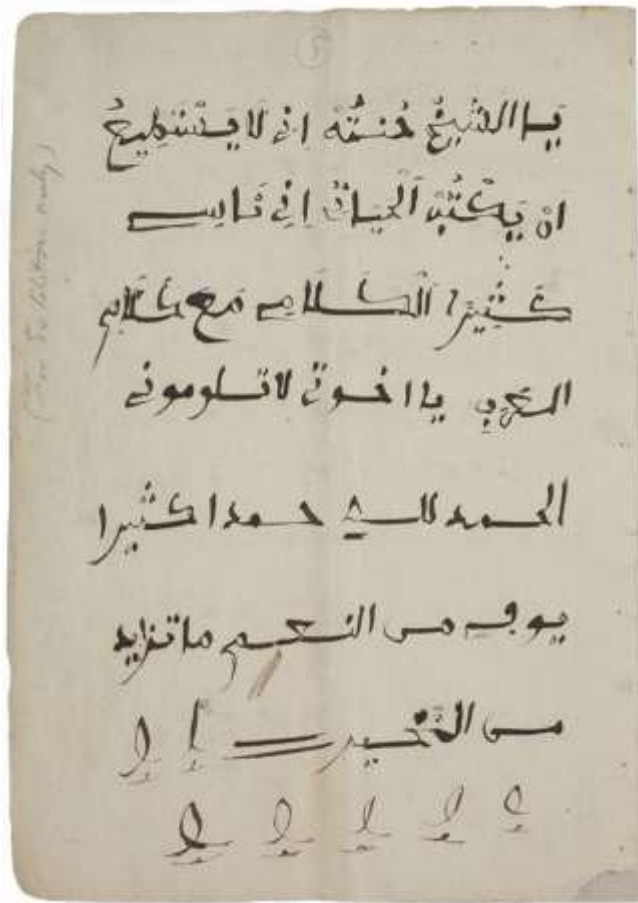 يا الشيخ هُنتُه اني لا يستطيع
ان يكتب الحيات إني ناسي
كثيرا الكلام مع كلام
العربي يا اخوتي لا تلوموني
الحمد لله حمدا كثيرا
يوفي من النعم ما تزايد
من الخير